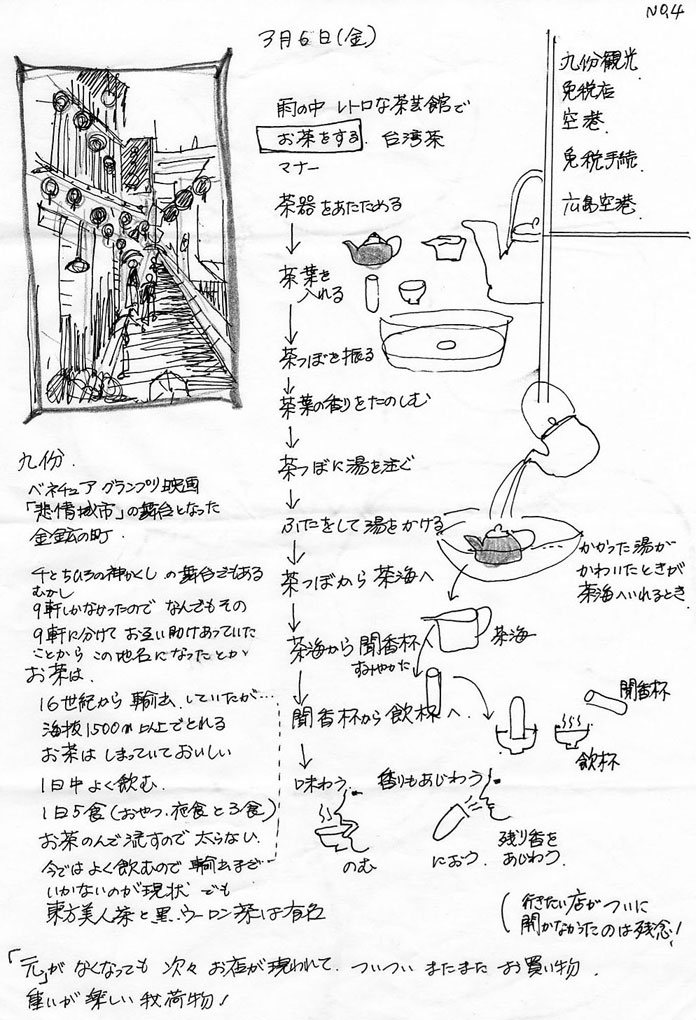 NO.4
3月6日(金)
九份観光
免税店
空港
免税手続
広島空港
雨の中 レトロな茶芸館で
お茶をする。台湾茶
マナー
茶器をあたためる
↓
茶葉を
入れる
↓
茶つぼを振る
↓
茶葉の香りをたのしむ
↓
茶つぼに湯を注ぐ
↓
ふたをして湯をかける
↓
茶つぼから茶海へ
↓
茶海から聞香杯へ
すみやかに
↓
聞香杯から飲杯へ
↓
味わう 香りもあじわう
のむ
におう
残り香を
あじわう
かかった湯が
かわいたときが
茶海へいれるとき
茶海
聞香杯
飲杯
九份
ベネチュア グランプリ映画
「悲情城市」の舞台となった
金鉱の町
千とちひろの神かくし の舞台でもある
むかし
9軒しかなかったので なんでもその
9軒に分けて お互い助けあっていた
ことから この地名になったとか
お茶は
16世紀から 輸出していたが…
海抜1500m以上でとれる
お茶は しまっていておいしい
1日中よく飲む
1日5食(おやつ、夜食と3食)
お茶のんで流すので太らない
今ではよく飲むので 輸出まで
いかないのが現状 でも
東方美人茶と黒ウーロン茶は有名
(行きたい店がついに
開かなかったのは残念!
「元」がなくなっても 次々 お店が現われて ついつい またまた お買い物
重いが楽しい 荷物!